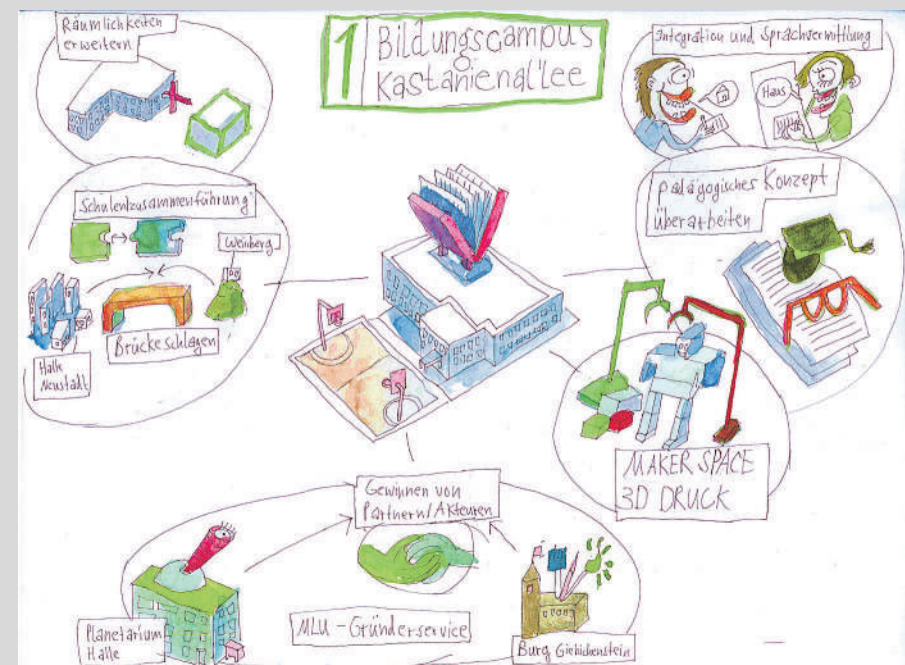 Räumlichkeiten
erweitern
1 Bildungscampus
Kastanienallee
Integration und Sprachvermittlung
Haus
Schulenzusammenführung
Weinberg
Halle
Neustadt
Brücke schlagen
pädagogisches Konzept
überarbeiten
MAKER SPACE
3D DRUCK
Gewinnen von
Partnern/Akteuren
Planetarium
Halle
MLU - Gründerservice
Burg Giebichenstein